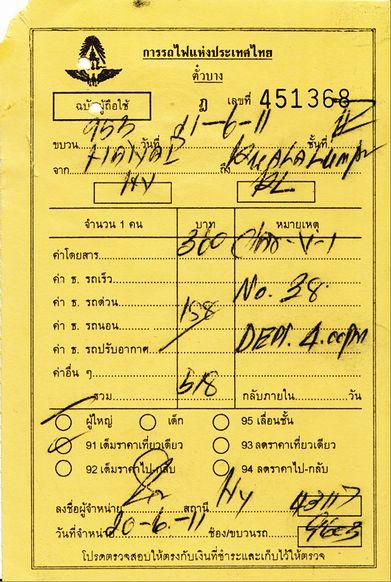 การรถไฟแห่งประเทศไทย
ตั๋วบาง
ฉบับผู้ถือใช้ ฎ เลขที่ 451368
ขบวน 953 วันที่ 21-6-11 ชั้นที่ II
จาก HATYAI ถึง KUALALumpur
HY KL
จำนวน 1 คน บาท หมายเหตุ
ค่าโดยสาร 360
ค่า ธ. รถเร็ว No. 38
ค่า ธ. รถด่วน 158
ค่า ธ. รถนอน
ค่า ธ. รถปรับอากาศ DEPT. 4.00pm
ค่าอื่น ๆ
รวม 518 กลับภายใน วัน
ผู้ใหญ่ เด็ก 95 เลื่อนชั้น
91 เต็มราคาเที่ยวเดียว 93 ลดราคาเที่ยวเดียว
92 เต็มราคาไป-กลับ 94 ลดราคาไป-กลับ
ลงชื่อผู้จำหน่าย สถานี Hy 43117
วันที่จำหน่าย 20-6-11 ช่อง/ขบวนรถ
โปรดตรวจสอบให้ตรงกับเงินที่ชำระและเก็บไว้ให้ตรวจ